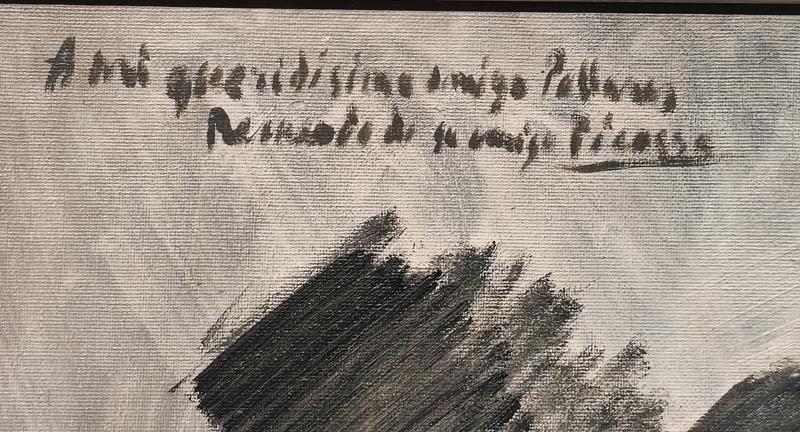 A mi queridisimo amigo Pallares
Recuerdo de su amigo Picasso